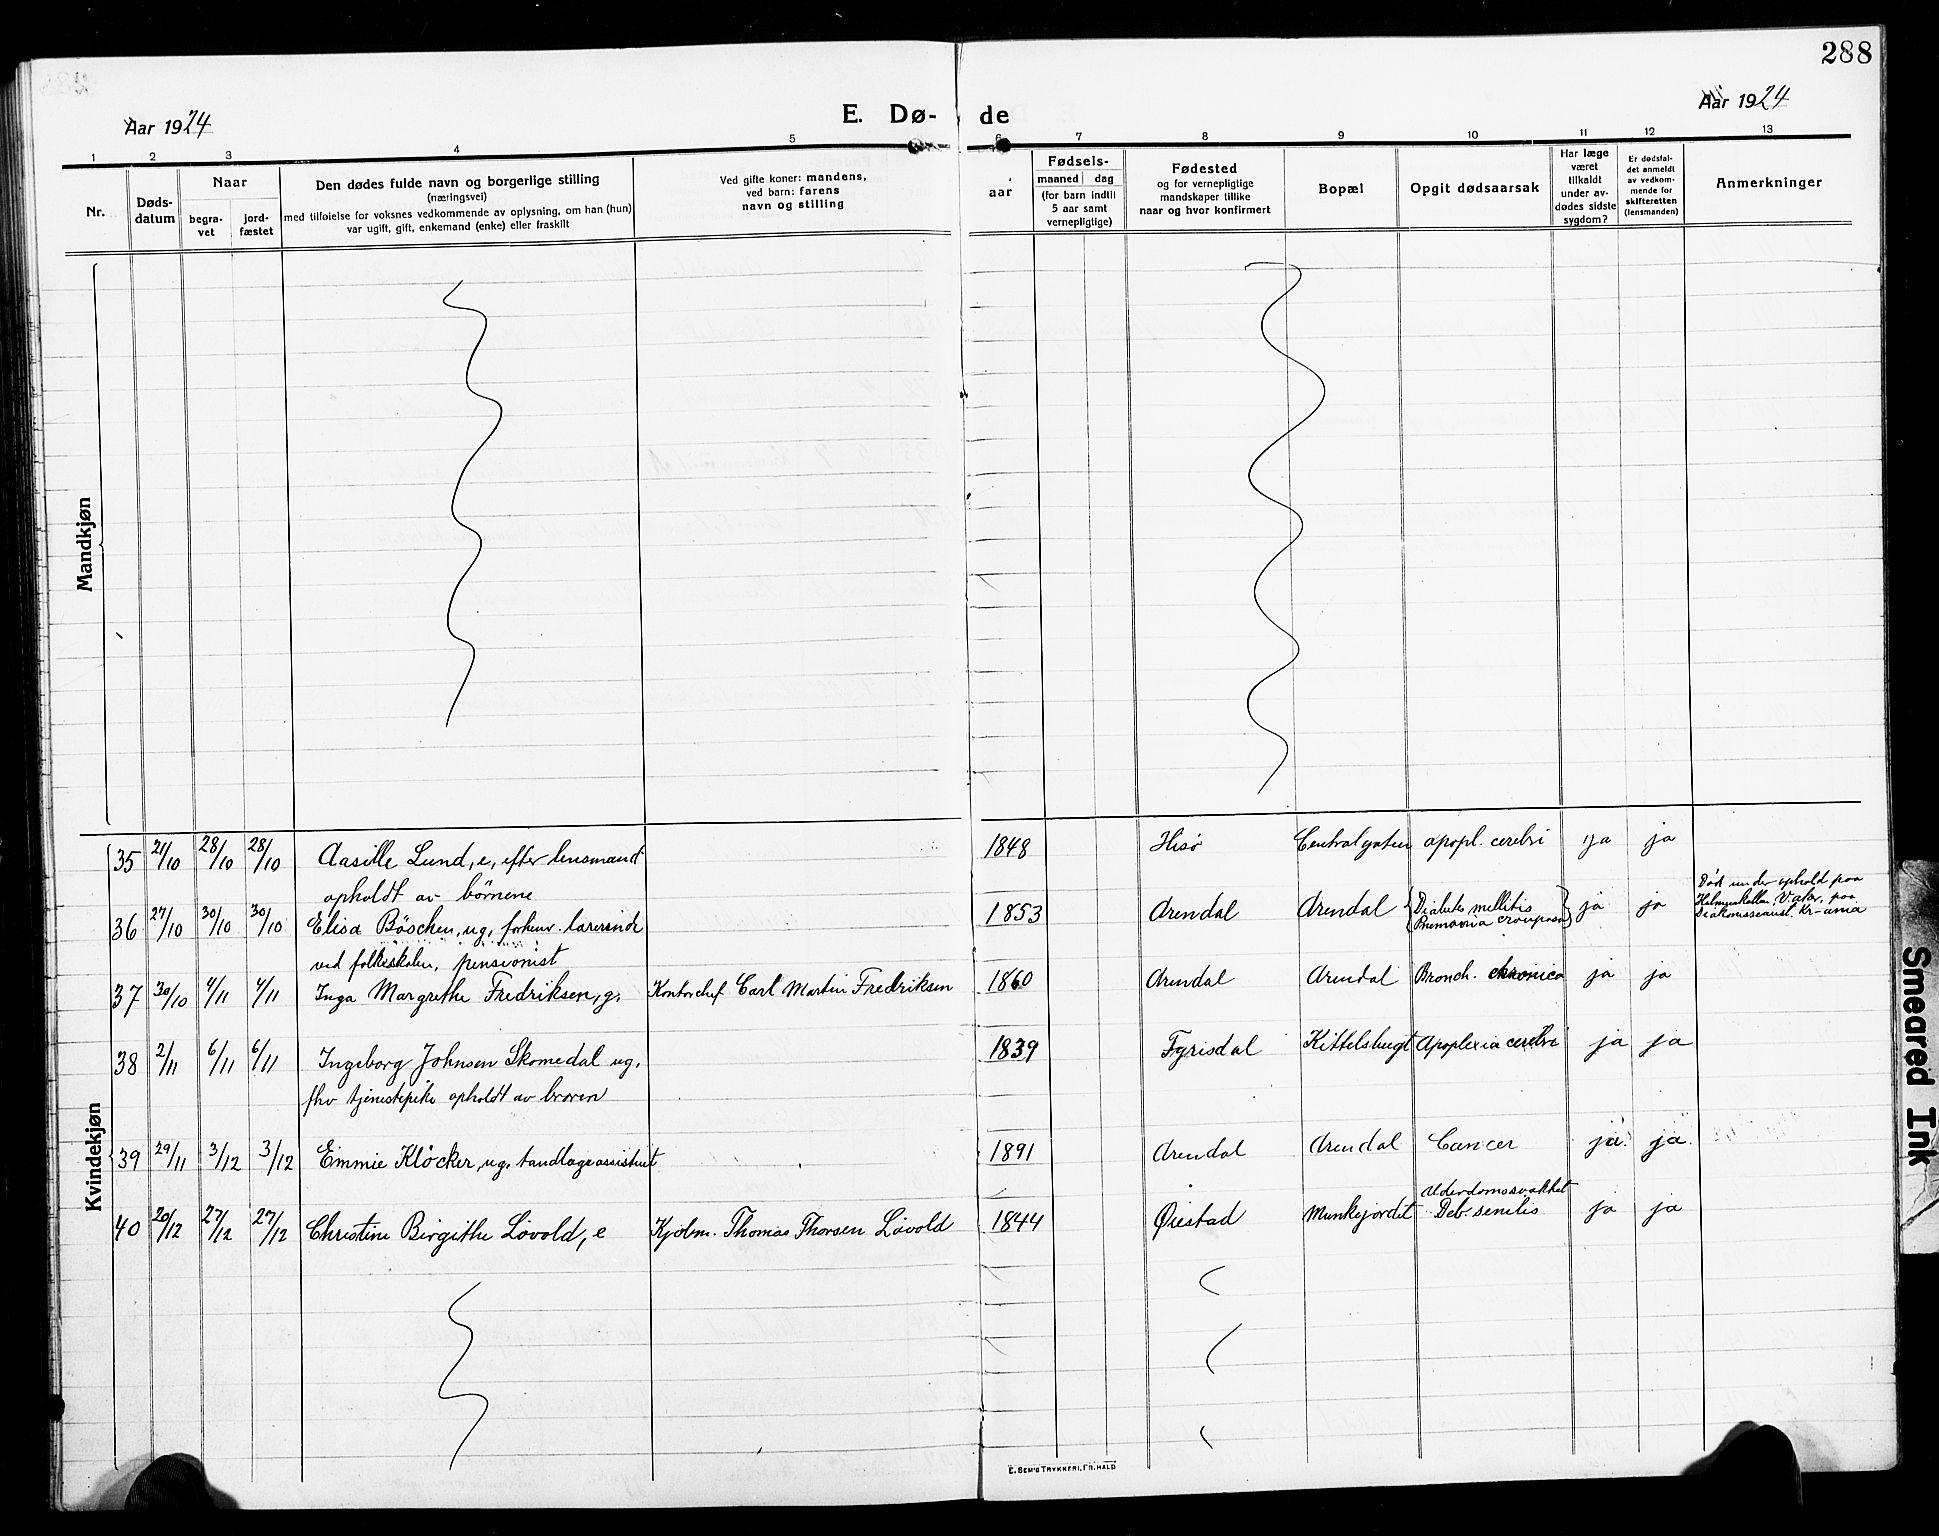 288
Aar 1924
E. Dø- de
Aar 1924
1 2 3 4 5 6 7 8 9 10 11 12 13
Nr.
Døds-
datum
Naar
begra-
vet
jord-
fæstet
Den dødes fulde navn og borgerlige stilling
(næringsvei)
med tilføielse for voksnes vedkommende av oplysning, om han (hun)
var ugift, gift, enkemand (enke) eller fraskilt
Ved gifte koner: mandens,
ved barn: farens
navn og stilling
aar
Fødsels-
maaned dag
(for barn indtil
5 aar samt
vernepligtige)
Fødested
og for vernepligtige
mandskaper tillike
naar og hvor konfirmert
Bopæl
Opgit dødsaarsak
Har læge
været
tilkaldt
under av-
dødes sidste
sygdom?
Er dødsfal-
det anmeldt
av vedkom-
mende for
skifteretten
(lensmanden)
Anmerkninger
Mandkjøn
Kvindekjøn
35 21/10 28/10 28/10 Aasille Lund, e, efter lensmand 1848 Hisø Centralgaten apopl. cerebri ja ja
opholdt av børnene
36 27/10 30/10 30/10 Elisa Böschen, ug, forhenv. lærerinde 1853 Arendal Arendal Diabetes mellitis ja ja Død under ophold paa
Pnemonia crouposa
ved folkeskolen, pensionist
37 30/10 4/11 4/11 Inga Margrethe Fredriksen, g. Kontorchef Carl Martin Fredriksen 1860 Arendal Arendal Bronch. chronica ja ja
38 2/11 6/11 6/11 Ingeborg Johnsen Skomedal ug, 1839 Fyrisdal Kittelsbugt Apoplexia cerebri ja ja
fhv tjenestepike opholdt av broren
39 29/11 3/12 3/12 Emmie Klöcker, ug, tandlægeassistent 1891 Arendal Arendal Cancer ja ja
40 20/12 27/12 27/12 Christine Birgithe Løvold, e Kjøbm. Thomas Thorsen Løvold 1844 Øiestad Munkejordet Alderdomssvakhet ja ja
Deb. senilis
E. SEM'S TRYKKERI, FR.HALD
Smeared Ink